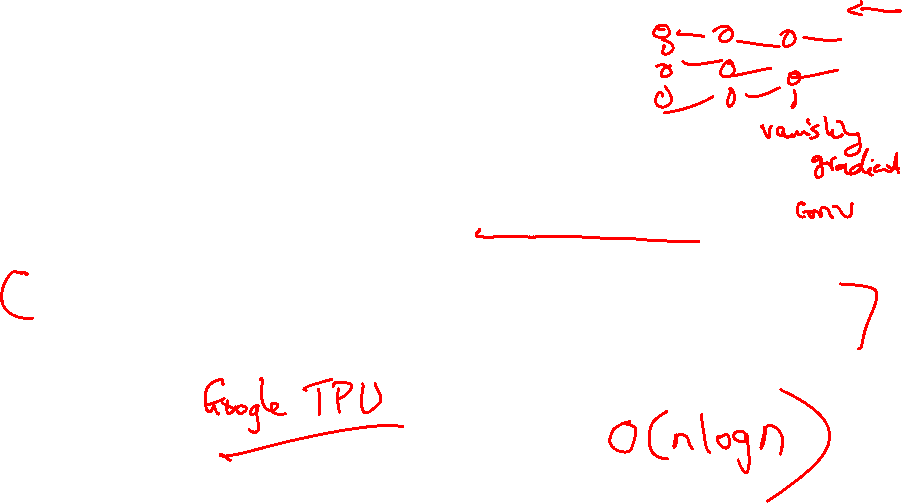 vanishing
gradient
conv
Google TPU
O(nlogn)